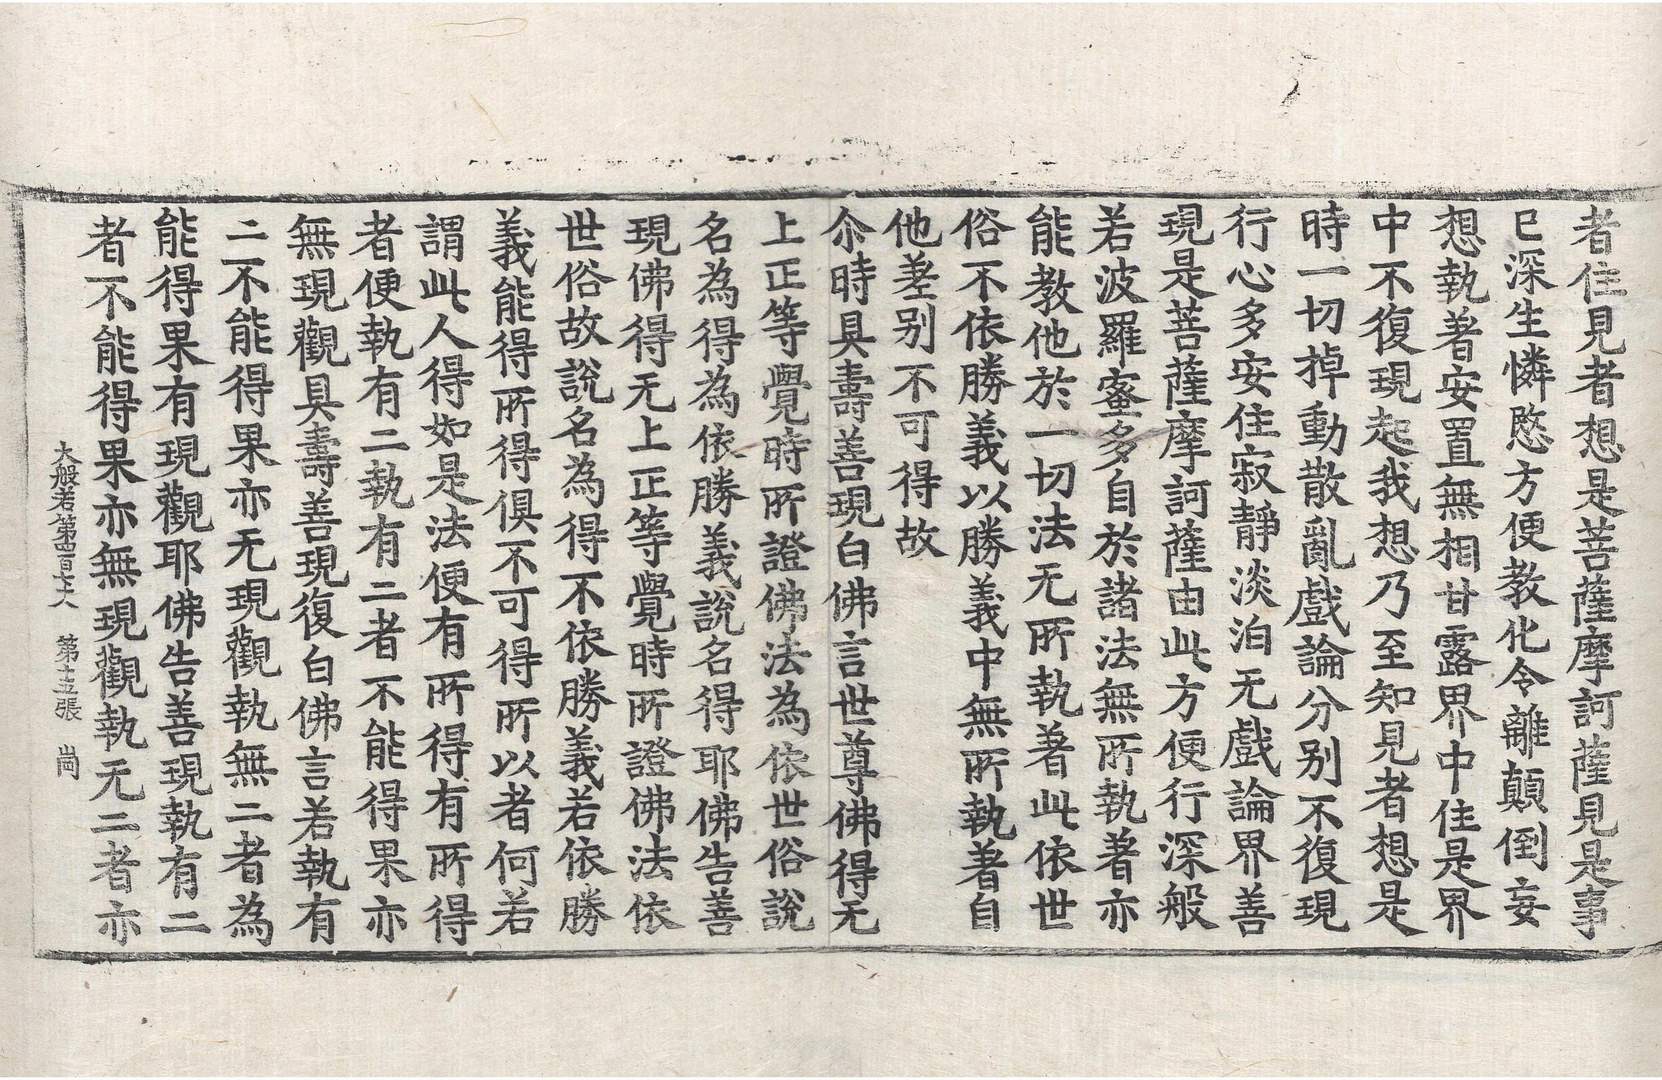 者住見者想是菩薩摩訶薩見是事
已深生憐愍方便教化令離顚倒妄
想執著安置無相甘露界中住是界
中不復現起我想乃至知見者想是
時一切掉動散亂戲論分别不復現
行心多安住寂靜淡泊无戲論界善
現是菩薩摩訶薩由此方便行深般
若波羅蜜多自於諸法無所執著亦
能教他於一切法无所執著此依世
俗不依勝義以勝義中無所執著自
他差别不可得故
尒時具壽善現白佛言世尊佛得无
上正等覺時所證佛法為依世俗說
名為得為依勝義說名得耶佛告善
現佛得无上正等覺時所證佛法依
世俗故說名為得不依勝義若依勝
義能得所得俱不可得所以者何若
謂此人得如是法便有所得有所得
者便執有二執有二者不能得果亦
無現觀具壽善現復白佛言若執有
二不能得果亦无現觀執無二者為
能得果有現觀耶佛告善現執有二
者不能得果亦無現觀執无二者亦
大般若第四百七十六 第十五張 崗